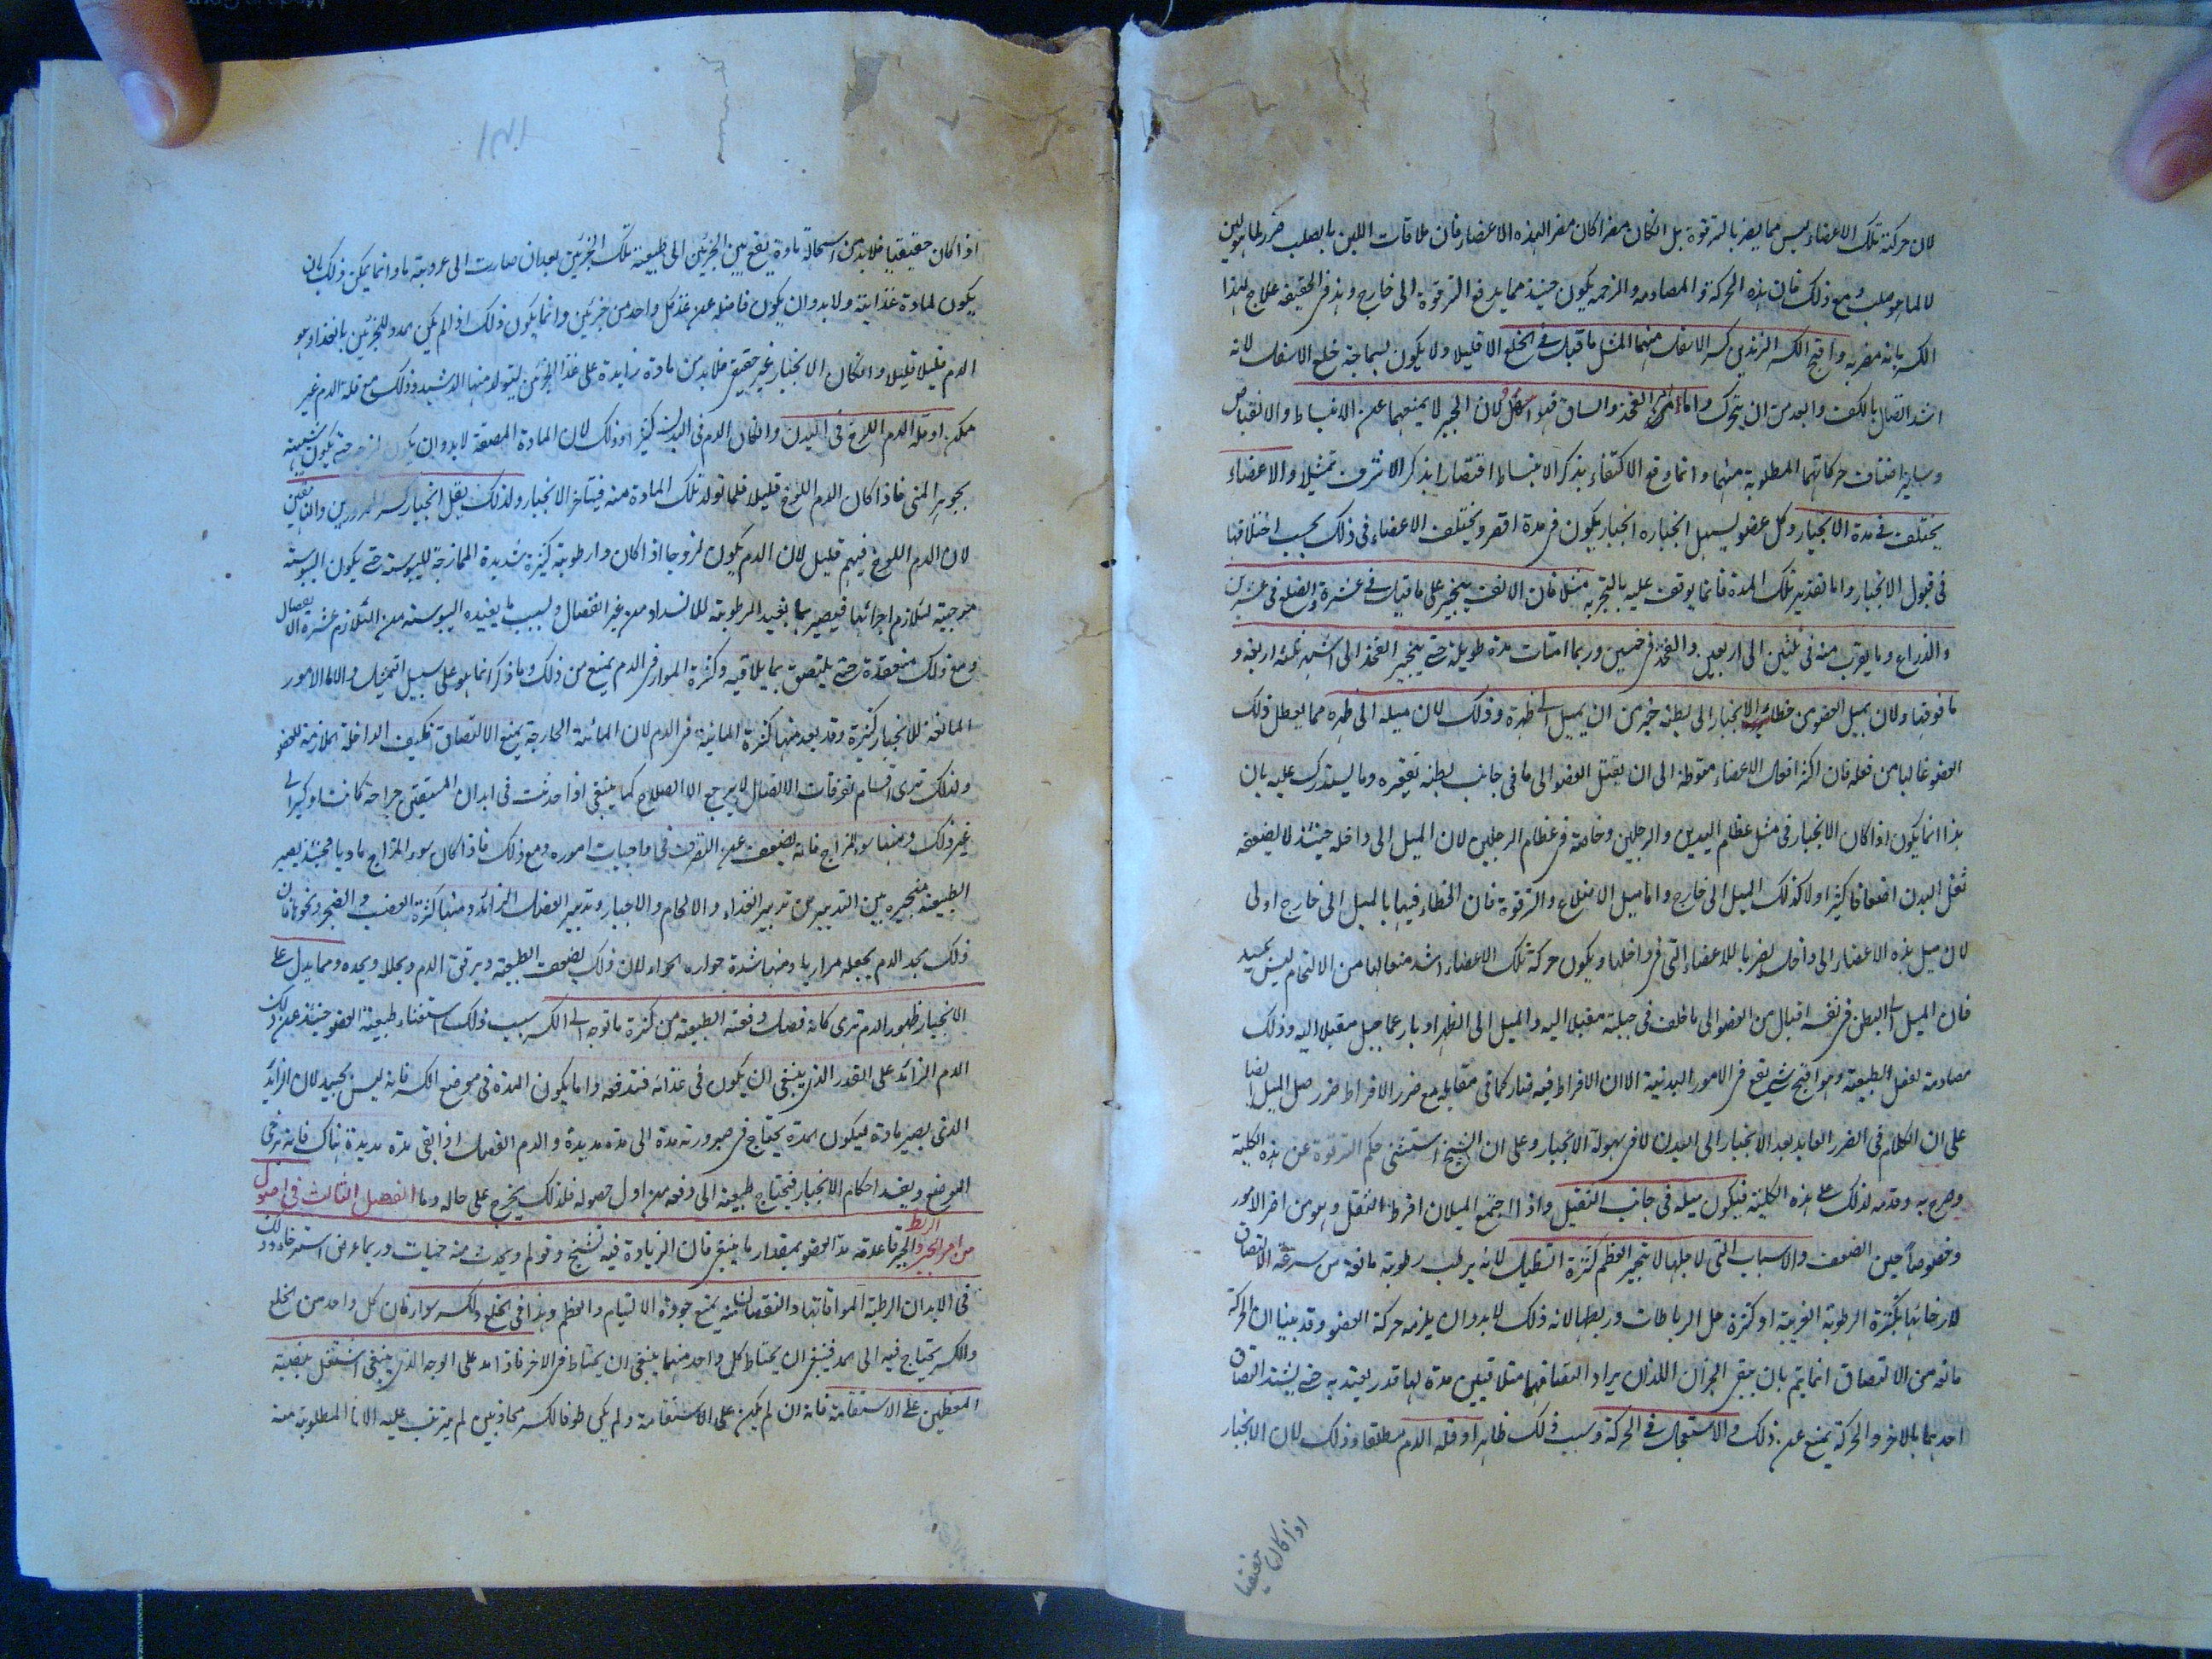 لان حركة تلك الاعضاء ليس مما يضر بالترقوة بل انكان مضرا كان مضرا لهذه الاعضاء فان ملاقات اللين بالصلب ضرر لما هو لين
لا لما هو صلب ومع ذلك فان هذه الحركة والمصادمة والمزحمة يكون حينئذ مما يدفع الترقوة الى خارج وهذا فى الحقيقة علاج لهذا
الكسر بانه مضر به واقبح الكسر الزندين كسر الاسفل منهما لمثل ما قيل فى الخلع الا قليلا ولا يكون لسماجة خلع الاسفل لانه
اشد اتصالا بالكف وابعد من ان يتحرك واما الفخذ والساق فهو اسهل لان الجبر لا يمنعهما عن الانبساط والانقباض
وساير اصناف حركاتهما المطلوبة منهما وانما وقع الاكتفاء بذكر الانبساط اقتصارا بذكر الاشرف تمثيلا والاعضاء
يختلف فى مدة الانجبار وكل عضو يسهل انجباره انجبار يكون فى مدة اقصر ويختلف الاعضاء فى ذلك بحسب اختلافها
فى قبول الانجبار واما تقدير تلك المدة فانما يوقف عليه بالتجربة مثلا فان الانف ينجبر على ما قيل فى عشرة والضلع فى عشرين
والذراع وما يقرب منه فى ثلثين الى اربعين والفخذ فى خمسين وربما امتدت مدة طويلة حتى ينجبر الفخذ الى اشهر ثلثة اربعة و
ما فوقها ولان يميل العضو من خطاء الانجبار الى بطنه خير من ان يميل الى ظهره وذلك لان ميله الى ظهره مما يعطل ذلك
العضو غالبا من فعله فان اكثر افعال الاعضاء منوطة الى ان يقبل العضو الى ما فى جانب بطنه تقعيره وما يستدرك عليه بان
هذا انما يكون اذا كان الانجبار فى مثل عظام اليدين والرجلين وخاصة فى عظام الرجلين لان الميل الى داخله حينئذ لا يضعفه
ثقل البدن اضعافا كثيرا ولا كذلك الميل الى خارج واما ميل الاضلاع والترقوة فان الخطاء فيها بالميل الى خارج اولى
لان ميل هذه الاعضاء الى داخل يضر بالاعضاء التى فى داخلها ويكون حركة تلك الاعضاء اشد منعا لها من الالتحام ليس بجيد
فان الميل الى البطن فى نفسه اقبال من العضو الى ما خلف فى جبلته مقبلا اليه والميل الى الظهر ادبار عما جبل مقبلا اليه وذلك
مصادمة لفعل الطبيعة وهو اقبح شئ يقع فى الامور البدنية الا ان الافراط فيه ضار كما فى مقابله مع ضرر الافراط ضرر اصل الميل ايضا
على ان الكلام فى الضرر العايد بعد الانجبار الى البدن لا فى سهولة الانجبار وعلى ان الشيخ استثنى حكم الترقوة عن هذه الكلية
وصرح به وقدمه لذلك على هذه الكلية فيكون ميله فى جانب الثقيل واذا اجتمع الميلان افرط الثقل وهو من اضر الامور
وخصوصا حين الضعف والاسباب التى لاجلها لا ينجبر العظم كثرة التنطيل لانه يرطب رطوبة مانعة من سرعة الالتصاق
لارخائها بكثرة الرطوبة الغريبة او كثرة حل الرباطات وربطها لانه ذلك لا بد وان يلزمه حركة العضو وقد بينا ان الحركة
مانعة من الالتصاق انما يتم بان يبقى الجزآن اللذان يراد التصاقهما متلاقيين مدة لها قدر يعتد به حتى يشتد التصاق
احدهما بالاخر والحركة يمنع عن ذلك والاستعجال فى الحركة وسبب ذلك ظاهر او قلة الدم مطلقا وذلك لان الانجبار
اذا كان حقيقيا
اذا كان حقيقيا فلا بد من استحالة مادة يقع بين الجزئين الى طبيعة تلك الجزئين بعد ان صارت الى عروبته ما وانما يمكن ذلك بان
يكون لمادة غذائية ولا بد وان يكون فاضلة عن غذاء كل واحد من جزئين وانما يكون ذلك اذا لم يكن بمدد للجزئين بالغذاء وهو
الدم قليلا قليلا وانكان الانجبار غير حقيقى فلا بد من مادة زايدة على غذاء الجزئين ليتولد منها الدشبد وذلك مع قلة الدم غير
ممكن او قلة الدم اللزج فى البدن وانكان الدم فى البدن كثيرا وذلك لان المادة الملصقة لا بد وان يكون لزجة حتى يكون شبيهة
بجوهر المنى فاذا كان الدم اللزج قليلا قلما تولد تلك المادة منه فيتاخر الانجبار ولذلك يقل انجبار كسر الممرورين والناقهين
لان الدم اللزج فيهم قليل لان الدم يكون لزوجا اذا كان دار رطوبة كثيرة شديدة الممازجة لليبوسة حتى يكون اليبوسة
موجبة لتلازم اجزائها فيصير بما يفيد الرطوبة للانسداد من غير انفصال وبسبب ما يفيده اليبوسة من التلازم عسرة الانفصال
ومع ذلك منعقدة حتى يلتصق بما يلاقيه وكثرة المرار فى الدم يمنع من ذلك وما ذكر انما هو على سبيل التمثيل والا فالامور
المانعة للانجبار كثيرة وقد يعد منها كثرة المائية فى الدم لان المائية الخارجة يمنع الالتصاق فكيف الداخلة الملازمة للعضو
ولذلك ترى اقسام تفرقات الاتصال لا يرجع الا الصلاح كما ينبغى اذا حدثت فى ابدان المستسقين جراحة كانت او كسرا الى
غير ذلك ومنها سوء المزاج فانه يضعف عن التصرف فى واجبات اموره ومع ذلك فاذا كان سوء المزاج ماديا فحينئذ يصير
الطبيعة متحيرة بين التدبيرين تدبير الغذاء والالحام والاجبار وتدبير الفضل الزائد ومنها كثرة الغضب والضجر ونحوها فان
ذلك بحد الدم يجعله مراريا ومنها شدة حرارة الهواء لان ذلك يضعف الطبيعة ويرقق الدم ويحلله ويحده ومما يدل على
الانجبار ظهور الدم ترى كانه فصل دفعته الطبيعة من كثرة ما توجه الى الكسر بسبب ذلك استغناء طبيعة العضو حينئذ عن ذلك
الدم الزائد على القدر الذى ينبغى ان يكون فى غذائه فتدفعه واما يكون المدة فى موضع الكسر فانه ليس بجيد لان الزائد
الذى يصير مادة ليكون المدة يحتاج فى صيرورته مدة الى مدة مديدة والدم الفصل اذا بقى مدة مديدة هناك فانه يرخى
الموضع ويفسد احكام الانجبار فيحتاج طبيعة الى دفعه من اول حصوله فلذلك يخرج على حاله وما الفصل الثالث فى اصول
من امر الجبر والربط الجبر قاعدته مد العضو بمقدار ما ينبغى فان الزيادة فيه تشنج وتولم ويحدث منه حميات وربما عرض استرخاء وذلك
فى الابدان الرطبة المواتاتها والنقصان منه يمنع جودة الالتيام والنظم وهذا فى الخلع والكسر سواء فان كل واحد من الخلع
والكسر يحتاج فيه الى المد فينبغى ان يحتاط كل واحد منهما ينبغى ان يحتاط فى الاخر فاذا مد على الوجه الذى ينبغى اشتغل بنصبة
العظمين على الاستقامة فانه ان لم يكن على الاستقامة ولم يكن طرفا الكسر محاذيين لم يترتب عليه الاثار المطلوبة منه